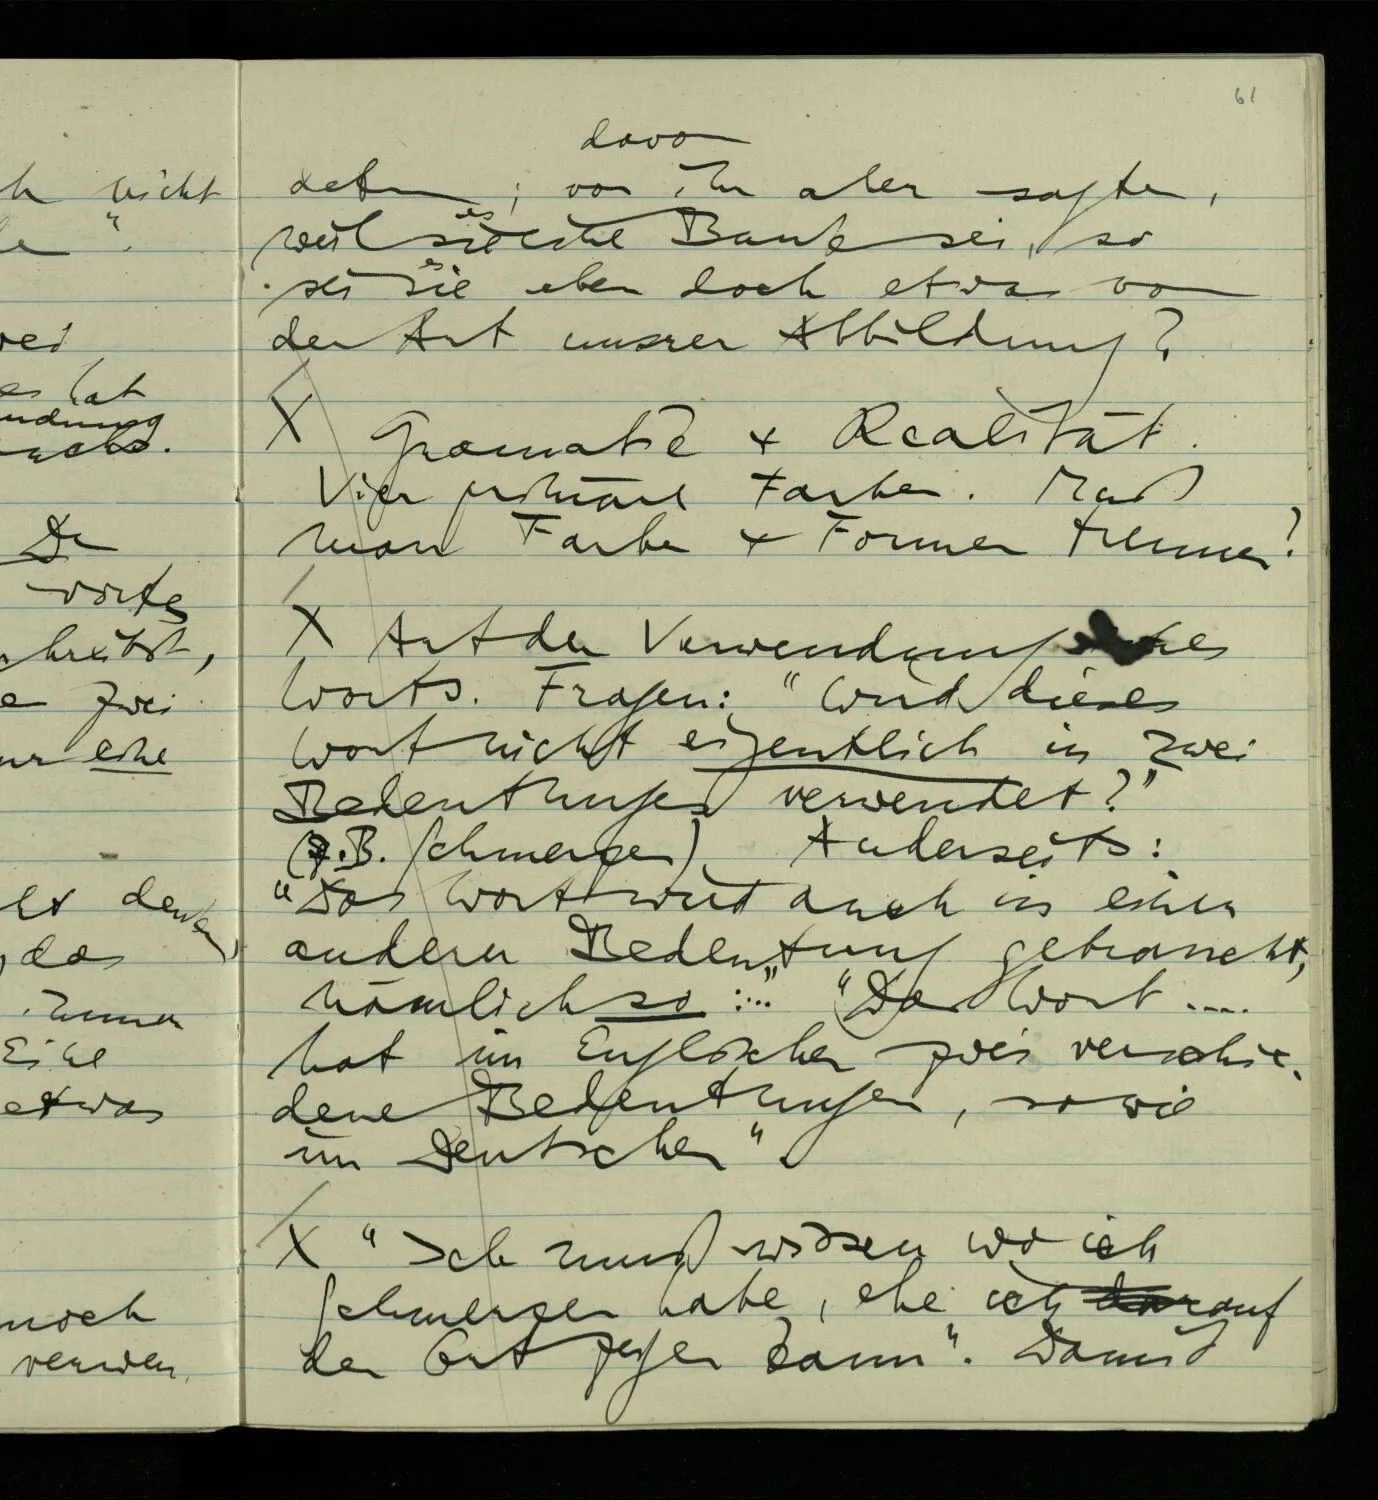 61
h nicht
".
wei
es hat
ndung
De
worte
hreibst,
zwei
nur eine
denken,
das
immer
Eine
etwas
noch
verwen-
davon
deten; von ihr aber sagten,
es
weil sie eine Bank sei, so
es
sei sie eben doch etwas von
der Art unsrer Abbildung?
X Grammatik + Realität.
Vier primäre Farben. Muß
man Farbe + Formen trennen?
X Art der Verwendung des
Worts. Fragen: "Wird dieses
Wort nicht eigentlich in zwei
Bedeutungen verwendet?"
(z.B. Schmerzen) Anderseits:
"Das Wort wird auch in einer
anderen Bedeutung gebraucht,
nämlich so:..." "Das Wort ....
hat im Englischen zwei verschie-
dene Bedeutungen, sowie
im Deutschen".
X "Ich muß wissen wo ich
Schmerzen habe, ehe ich darauf
den Ort zeigen kann". Damit